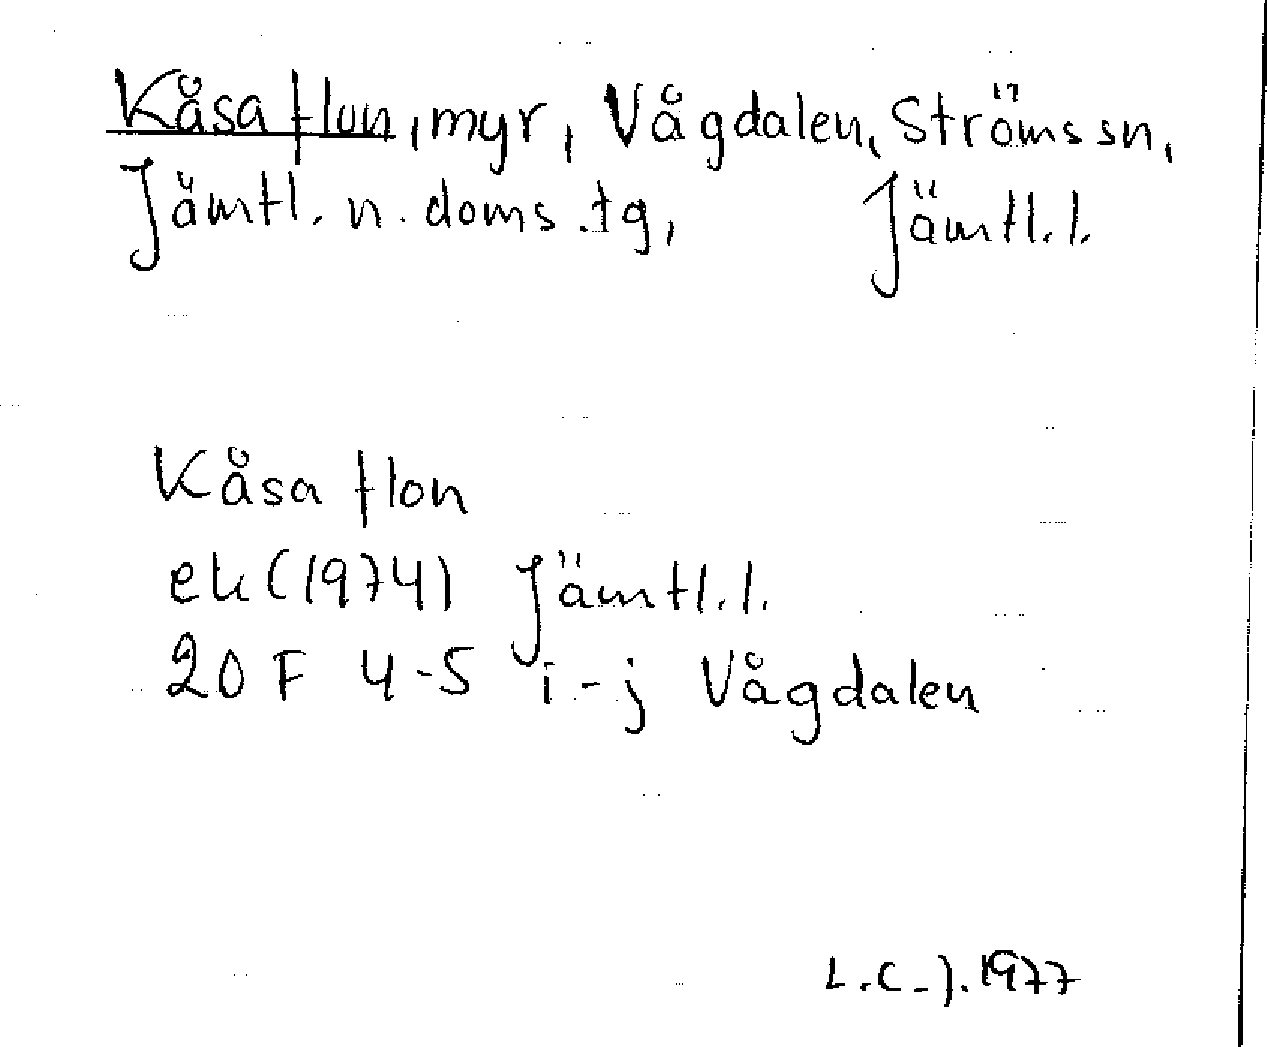 Kåsaflon, myr, Vågdalen, Ströms sn,
Jämtl. n. doms.tg, Jämtl.l.
Kåsaflon
ek (1974) Jämtl.l.
20 F 4-5 i-j Vågdalen
L.C-J. 1977